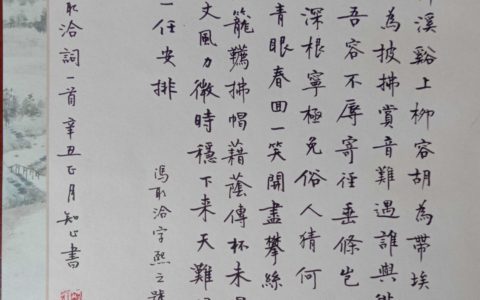 溪谿上柳容胡為帶埃
為披拂賞音難遇誰與
吾容不辱寄徑垂條豈
深根寧極免俗人猜何
青眼春回一笑開盡攀絲
籠韉拂帽藉蔭傳杯未
丈風力微時穩下來天難
一任安排
馮取洽字熙之號
取洽詞一首辛丑正月知心書